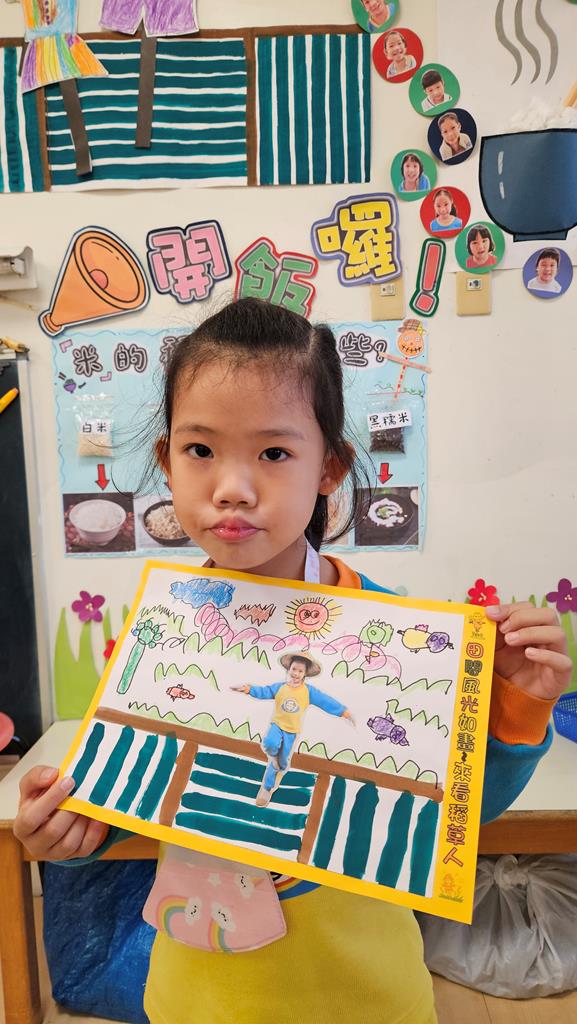 開飯囉!
米的
些?
白米
黑糯米
田間風光如畫~來看稻草人